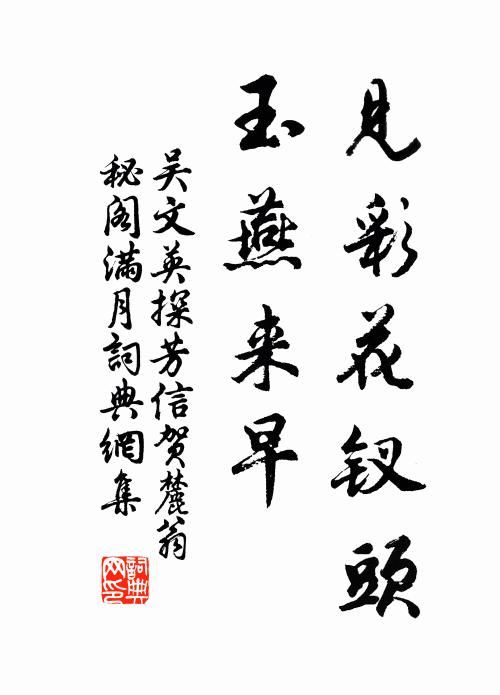 見彩花钗頭
玉燕来早
吴文英探芳信贺麓翁
秘阁满月詞典網集
詞典网印